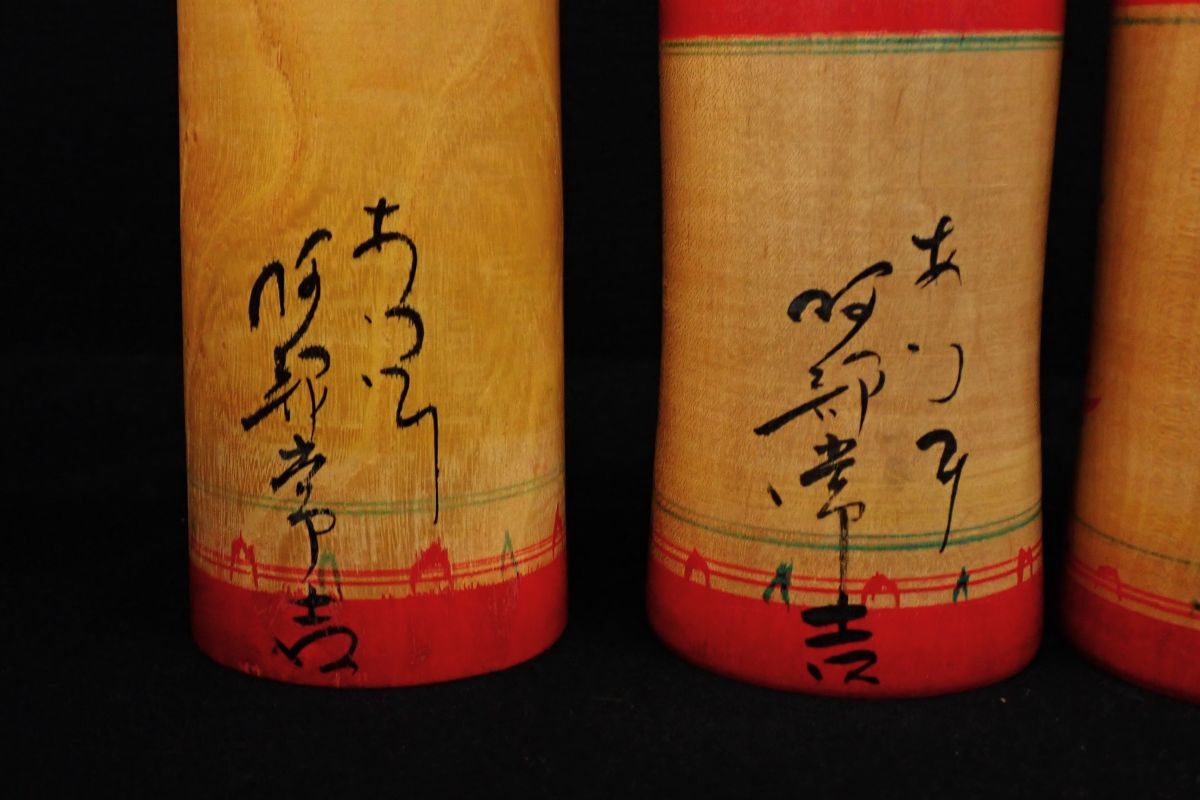 あつみ
阿部常吉
あつみ
阿部常吉